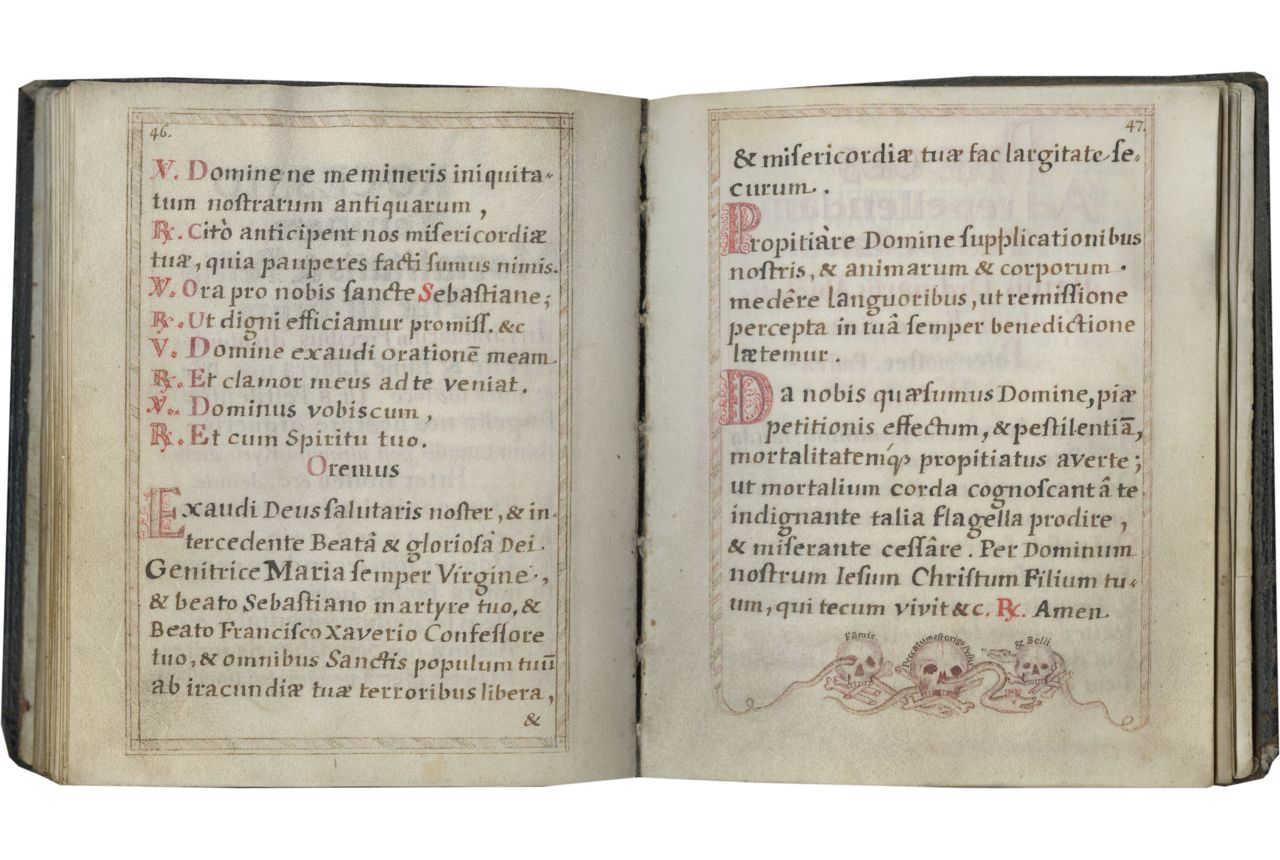 46.
V. Domine ne memineris iniquita-
tum noſtrarum antiquarum,
℟. Citò anticipent nos miſericordiæ
tuæ, quia pauperes facti ſumus nimis.
V. Ora pro nobis ſancte Sebaſtiane;
℟. Ut digni efficiamur promiſſ. &c
V. Domine exaudi orationē meam.
℟. Et clamor meus ad te veniat.
V. Dominus vobiscum,
℟. Et cum Spiritu tuo.
Oremus
Exaudi Deus ſalutaris noſter, & in-
tercedente Beatâ & glorioſâ Dei
Genitrice Maria ſemper Virgine,
& beato Sebaſtiano martyre tuo, &
Beato Franciſco Xaverio Confeſſore
tuo, & omnibus Sanctis populum tuū
ab iracundiæ tuæ terroribus libera,
&
47.
& miſericordiæ tuæ fac largitate ſe-
curum.
Propitiâre Domine ſupplicationibus
noſtris, & animarum & corporum
medêre languoribus, ut remiſſione
percepta in tuâ ſemper benedictione
lætemur.
Da nobis quæſumus Domine, piæ
petitionis effectum, & peſtilentiā,
mortalitatemq́ꝫ propitiatus averte;
ut mortalium corda cognoſcant â te
indignante talia flagella prodire,
& miſerante ceſſâre. Per Dominum
noſtrum Ieſum Chriſtum Filium tu-
um, qui tecum vivit &c. ℟. Amen.
Famis. Peccatum eſt origo Peſtis & Belli